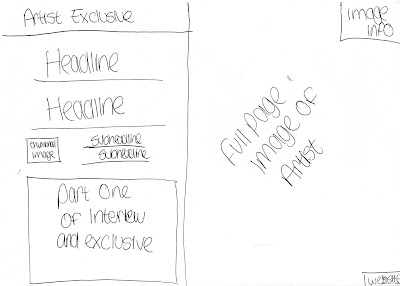 Artist Exclusive
Headline
Headline
thumbnail
image
Subheadline
Subheadline
Part One
of Interview
and exclusive
image
INFO
Full page
image of
Artist
website